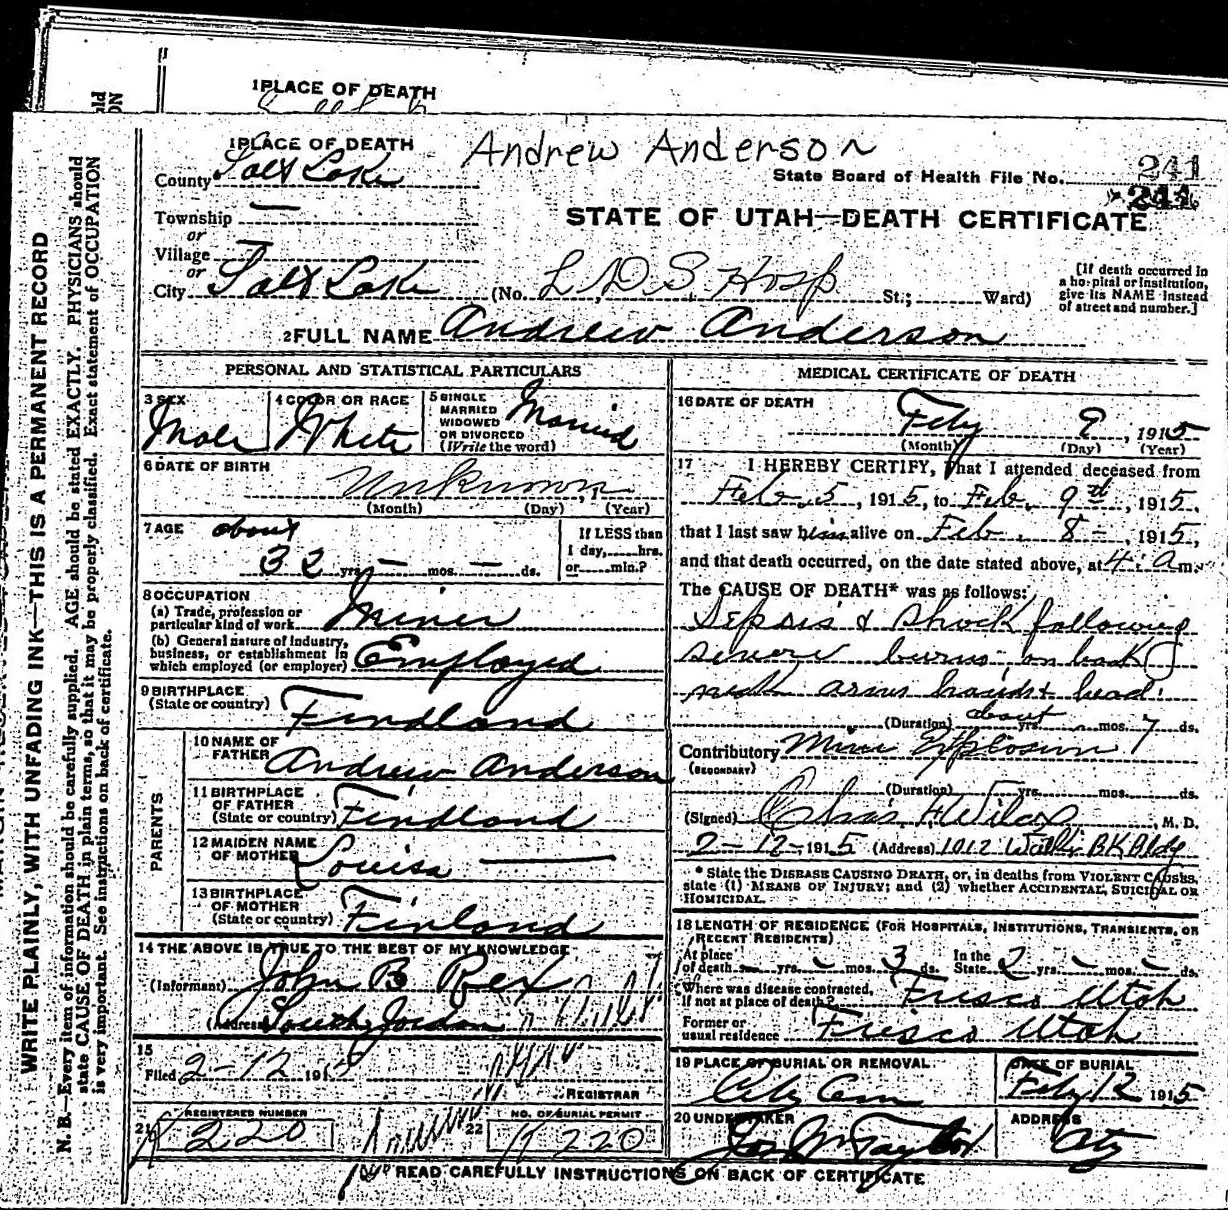 1 PLACE OF DEATH
1 PLACE OF DEATH
Andrew Anderson
County Salt Lake
State Board of Health File No. 241
241
Township —
or
STATE OF UTAH—DEATH CERTIFICATE
Village —
or
City Salt Lake (No. L.D.S. Hosp St.; Ward)
[If death occurred in
a hospital or institution,
give its NAME instead
of street and number.]
2 FULL NAME Andrew Anderson
PERSONAL AND STATISTICAL PARTICULARS
3 SEX
Male
4 COLOR OR RACE
White
5 SINGLE
MARRIED
WIDOWED
OR DIVORCED
(Write the word)
Married
6 DATE OF BIRTH
Unknown, 1
(Month) (Day) (Year)
7 AGE about
32 yrs. — mos. — ds.
If LESS than
1 day, hrs.
or min.?
8 OCCUPATION
(a) Trade, profession or
particular kind of work Miner
(b) General nature of industry,
business, or establishment in
which employed (or employer) Employed
9 BIRTHPLACE
(State or country) Findland
PARENTS
10 NAME OF
FATHER Andrew Anderson
11 BIRTHPLACE
OF FATHER
(State or country) Findland
12 MAIDEN NAME
OF MOTHER Louisa —
13 BIRTHPLACE
OF MOTHER
(State or country) Finland
14 THE ABOVE IS TRUE TO THE BEST OF MY KNOWLEDGE
(Informant) John B Rex
(Address) South Jordan
15
Filed 2-12 191
REGISTRAR
21 REGISTERED NUMBER
K 220
22 NO. OF BURIAL PERMIT
K 220
MEDICAL CERTIFICATE OF DEATH
16 DATE OF DEATH
Feby 9, 1915
(Month) (Day) (Year)
17 I HEREBY CERTIFY, that I attended deceased from
Feb. 5, 1915, to Feb. 9th, 1915,
that I last saw him alive on Feb. 8 -, 1915,
and that death occurred, on the date stated above, at 4. a m.
The CAUSE OF DEATH* was as follows:
Sepsis & shock following
severe burns on back
arms hands & head.
(Duration) about yrs. mos. 7 ds.
Contributory Mine Explosion
(SECONDARY)
(Duration) yrs. mos. ds.
(Signed) Chas F Wilcox, M. D.
2-12-1915 (Address) 1012 Walker BK Bldg
* State the DISEASE CAUSING DEATH, or, in deaths from VIOLENT CAUSES,
state (1) MEANS OF INJURY; and (2) whether ACCIDENTAL, SUICIDAL OR
HOMICIDAL.
18 LENGTH OF RESIDENCE (FOR HOSPITALS, INSTITUTIONS, TRANSIENTS, OR
RECENT RESIDENTS)
At place
of death — yrs. — mos. 3 ds. In the
State 2 yrs. — mos. — ds.
Where was disease contracted,
if not at place of death? Frisco Utah
Former or
usual residence Frisco Utah
19 PLACE OF BURIAL OR REMOVAL
City Cem
DATE OF BURIAL
Feby 12 1915
20 UNDERTAKER
Jos Wm Taylor
ADDRESS
City
READ CAREFULLY INSTRUCTIONS ON BACK OF CERTIFICATE
WRITE PLAINLY, WITH UNFADING INK—THIS IS A PERMANENT RECORD
N. B.—Every item of information should be carefully supplied. AGE should be stated EXACTLY. PHYSICIANS should
state CAUSE OF DEATH in plain terms, so that it may be properly classified. Exact statement of OCCUPATION
is very important. See instructions on back of certificate.